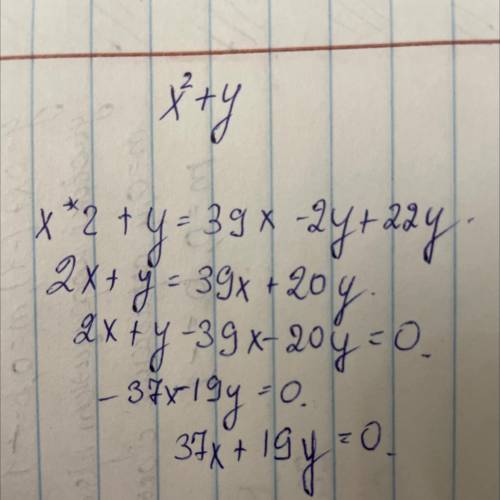 x²+y
x*2 + y = 39x - 2y + 22y.
2x + y = 39x + 20y.
2x + y - 39x - 20y = 0.
- 37x - 19y = 0.
37x + 19y = 0.